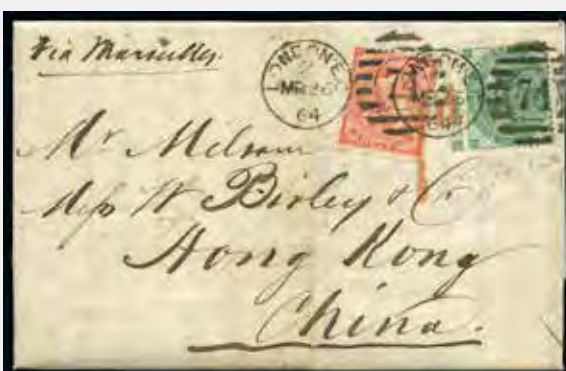 Via Marseilles.
LONDON E
MR 26
64
Mr Milsom
Messrs W Birley & Co
Hong Kong
China.